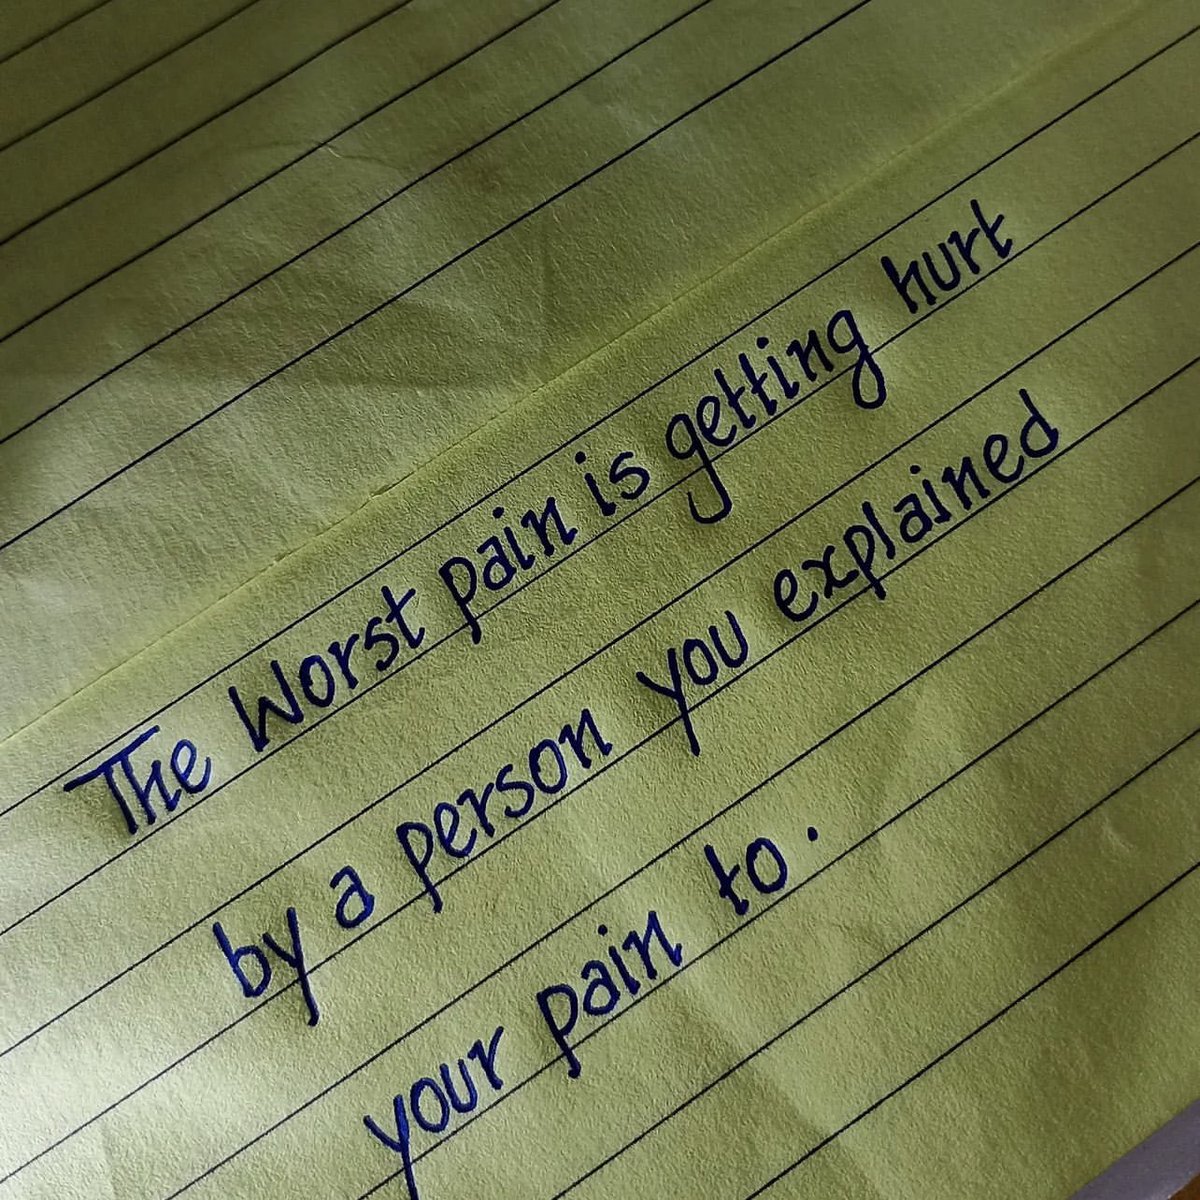 The Worst pain is getting hurt
by a person you explained
your pain to.